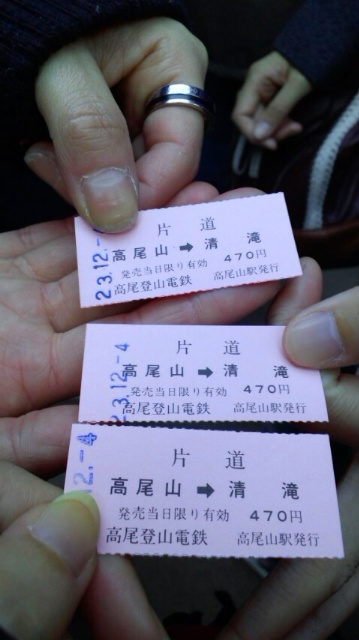 片道
23.12.-
高尾山➡清滝
発売当日限り有効 470円
高尾登山電鉄 高尾山駅発行
片道
23.12.-4
高尾山➡清滝
発売当日限り有効 470円
高尾登山電鉄 高尾山駅発行
片道
12.-4
高尾山➡清滝
発売当日限り有効 470円
高尾登山電鉄 高尾山駅発行